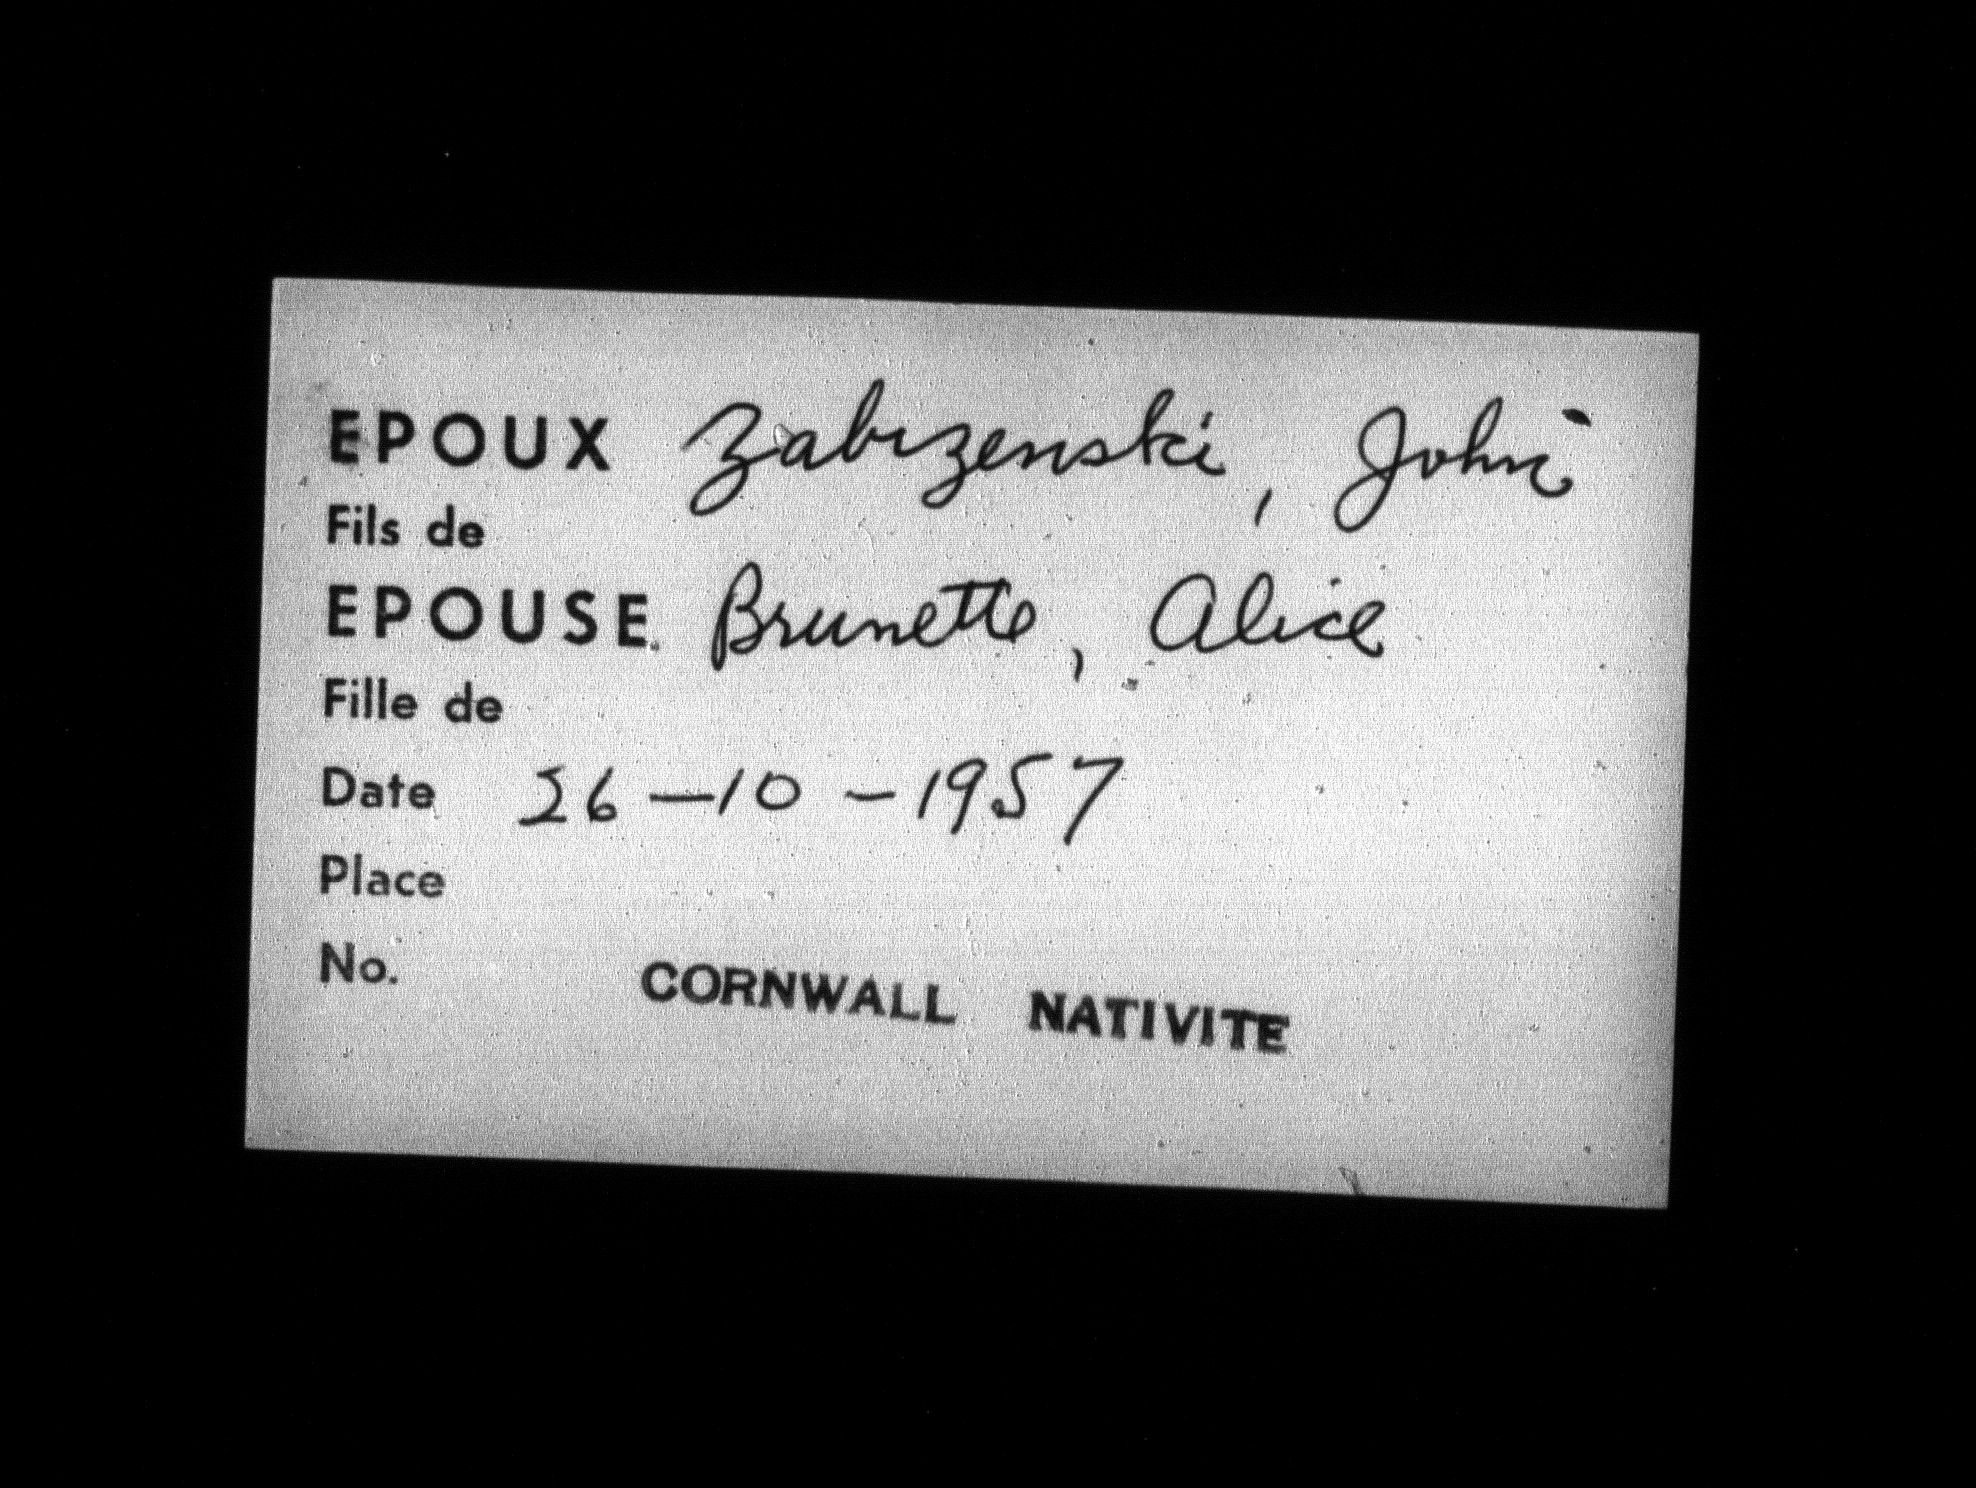 EPOUX Zabrzenski, John
Fils de
EPOUSE Brunette, Alice
Fille de
Date 26-10-1957
Place
No.
CORNWALL NATIVITE